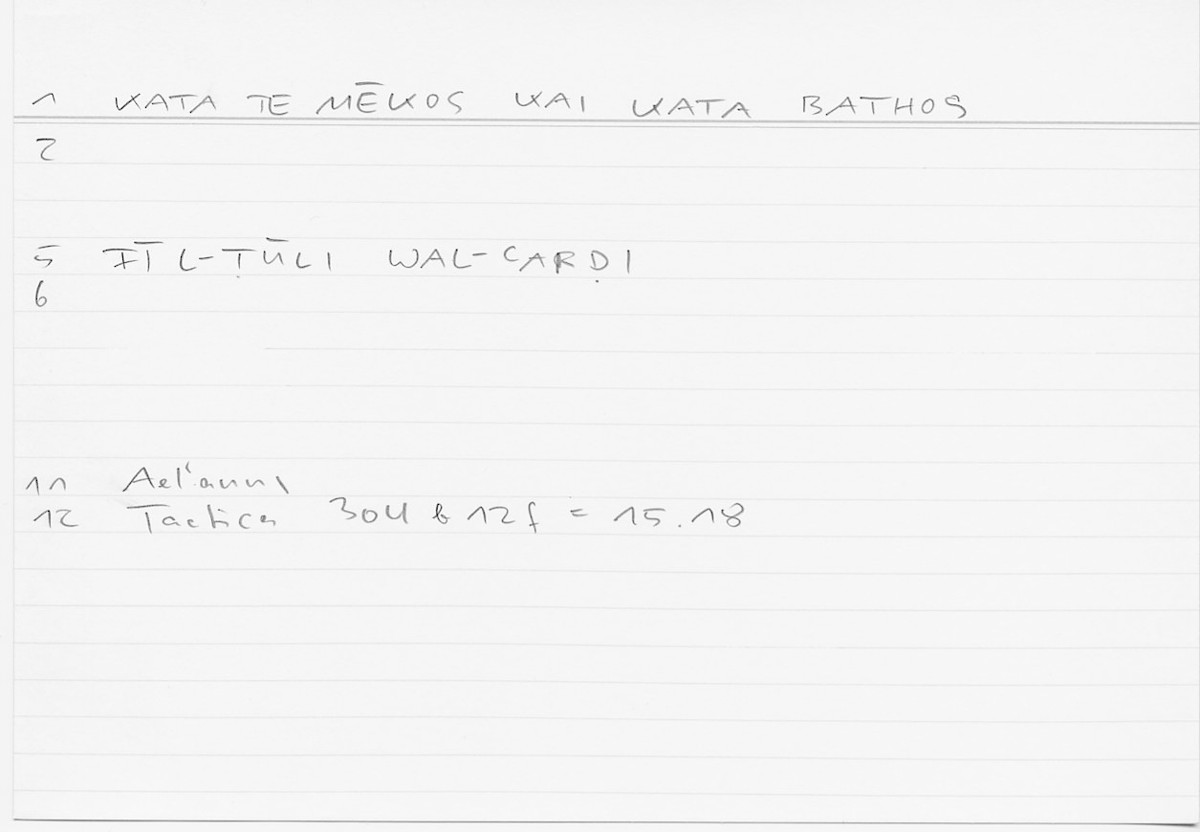 1 KATA TE MĒKOS KAI KATA BATHOS
2
5 FĪ L-ṬŪLI WAL-ʿARḌI
6
11 Aelianus
12 Tactica 304 b 12 f = 15.18